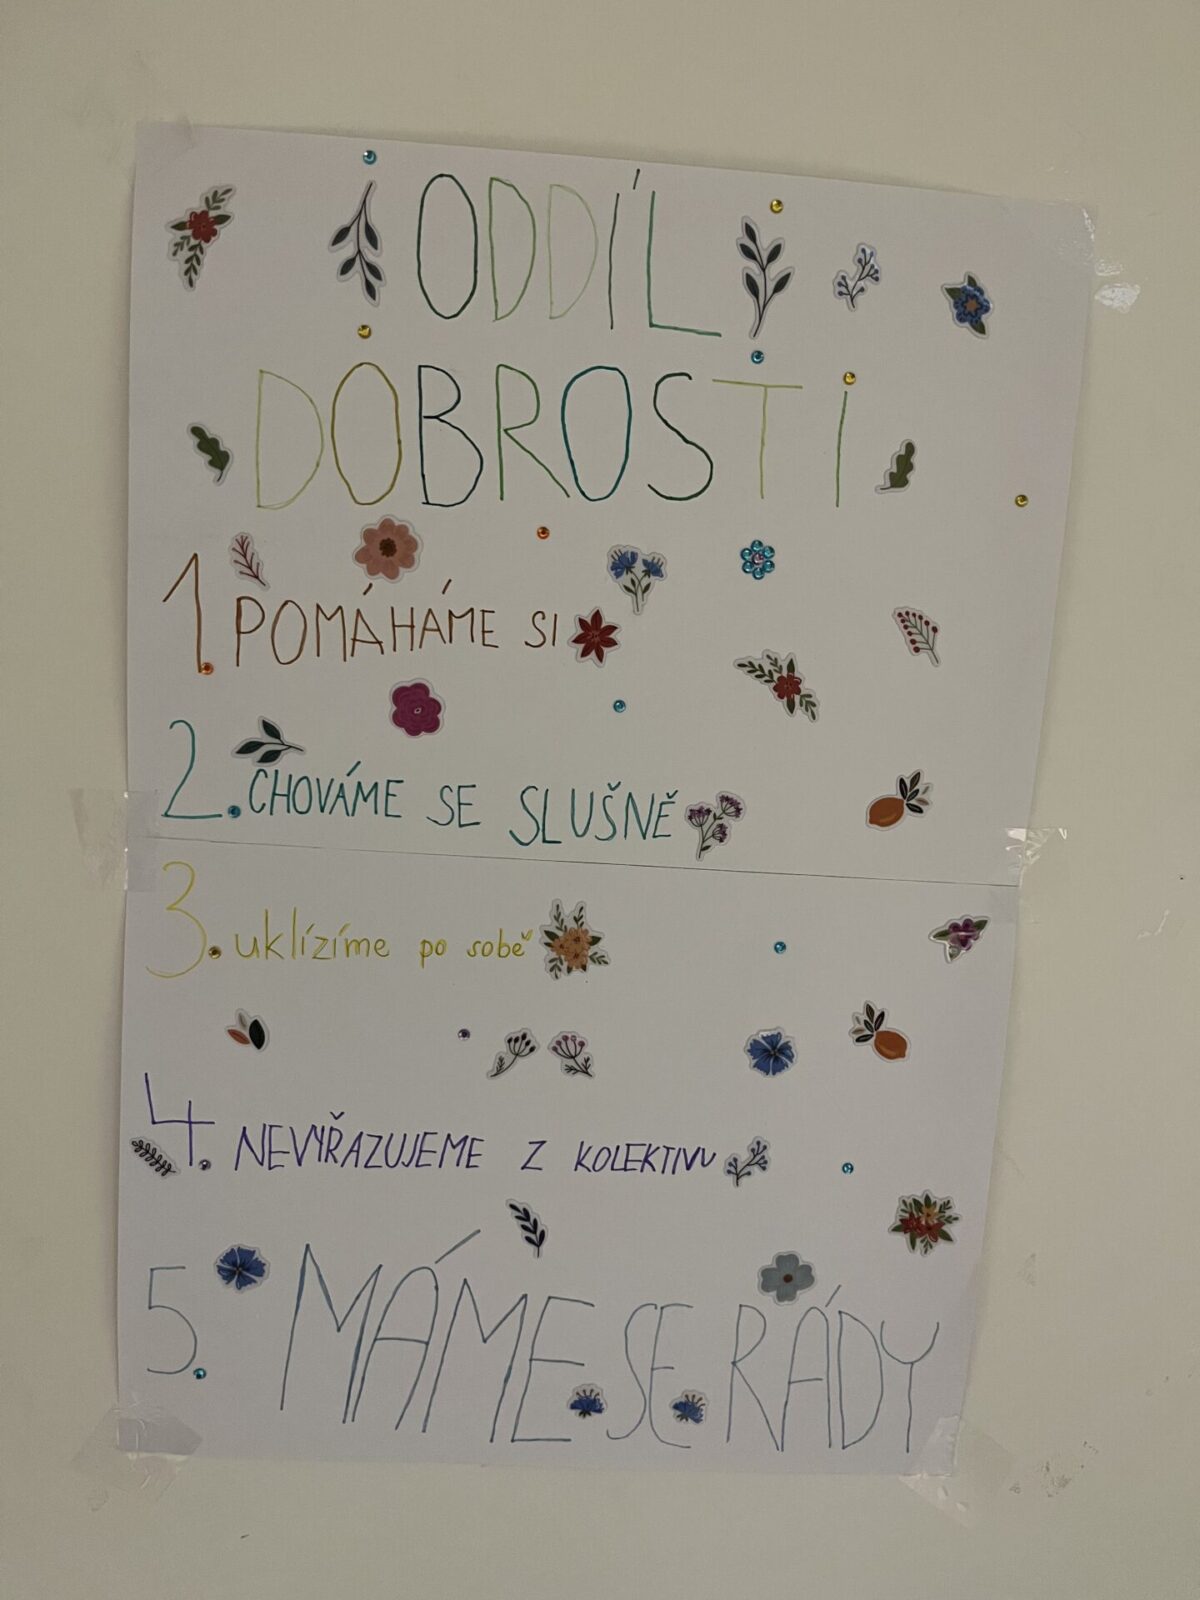 ODDÍL
DOBROSTI
1. POMÁHÁME SI
2. CHOVÁME SE SLUŠNĚ
3. uklízíme po sobě
4. NEVYŘAZUJEME Z KOLEKTIVU
5. MÁME SE RÁDY